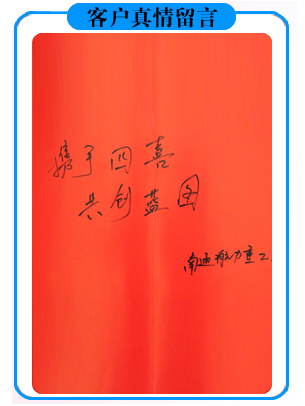 客户真情留言
携手四喜
共创蓝图
南通航力重工